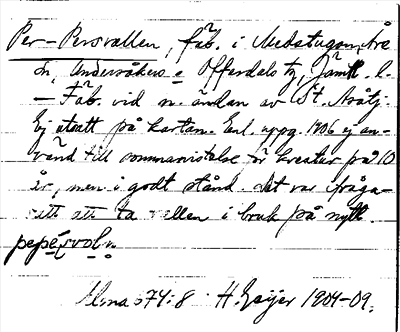 Per-Persvallen, fäb. i Medstugan, Åre
sn, Undersåkers o Offerdals tg, Jämtl. l.
— Fäb. vid n. ändan av St. Åsåtj.
Ej utsatt på kartan. Enl. uppg. 1906 ej an-
vänd till sommarvistelse för kreatur på 10
år, men i godt stånd. Det var ifråga-
satt att ta vallen i bruk på nytt.
Alma 574:8 H. Geijer 1904-09.